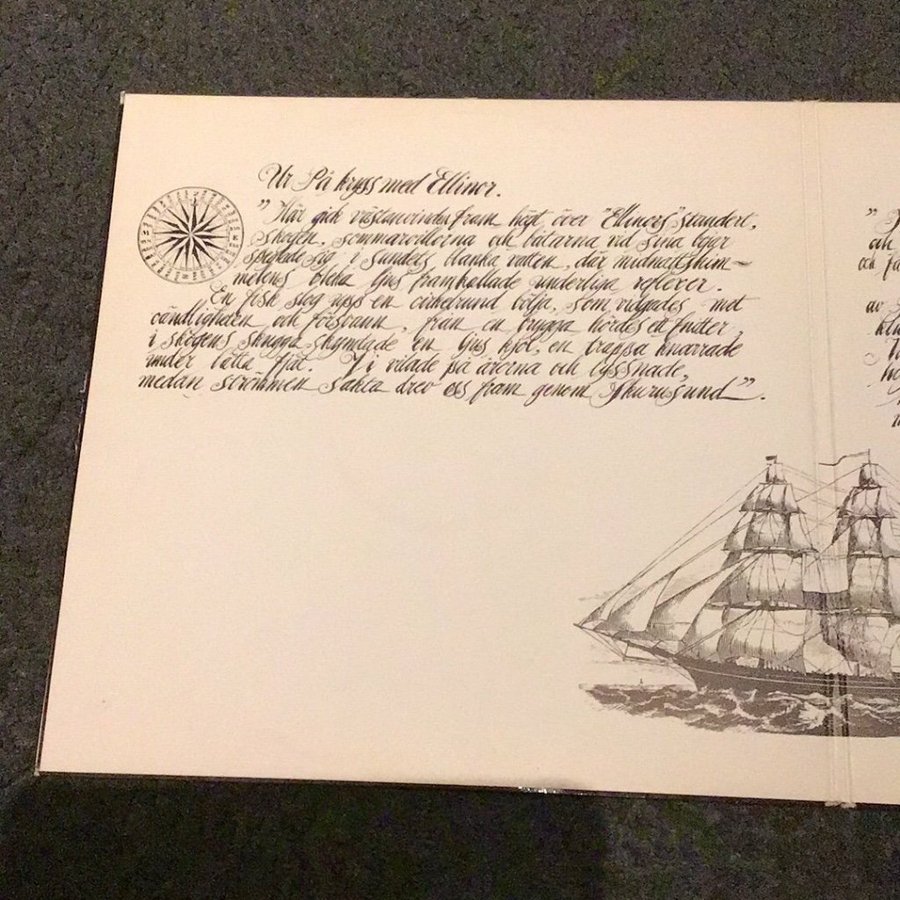 Ur På kryss med Ellinor.
"Här gick västanvinden fram högt över "Ellinors" standert,
skogen, sommarvillorna och båtarna vid sina bojar
speglade sig i sundets blanka vatten, där midnattshim-
melens bleka ljus framkallade underliga reflexer.
En fisk slog nyss en cirkelrund bölja, som vidgades mot
oändligheten och försvann, från en brygga hördes ett fnitter,
i skogens skugga skymtade en ljus kjol, en trappa knarrade
under lätta fjät. Vi vilade på årorna och lyssnade,
medan strömmen sakta drev oss fram genom Skurusund".
"
och
och
av